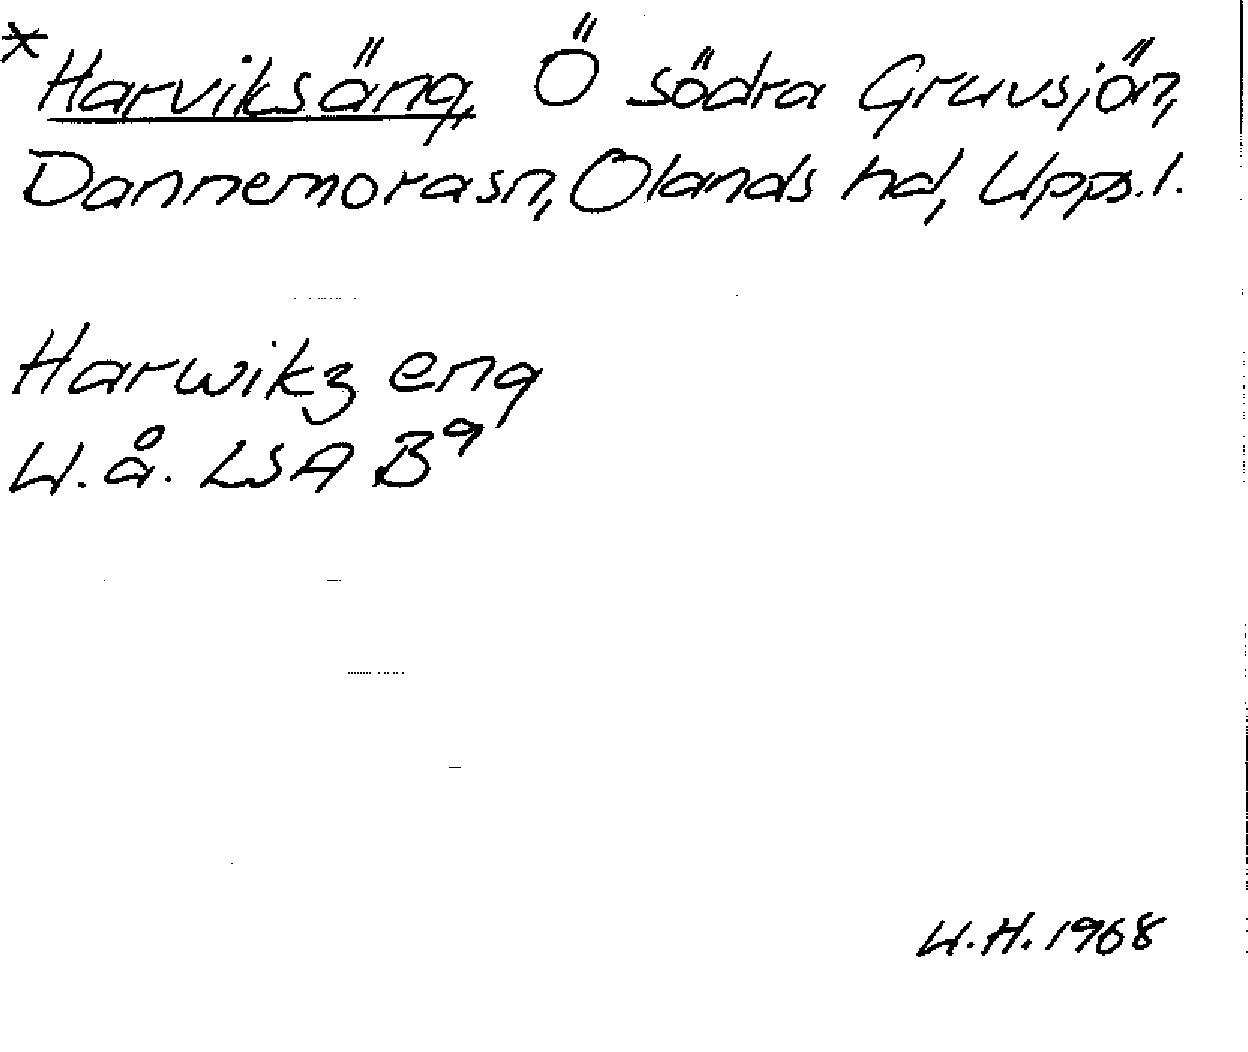 *Harviksäng, Ö södra Gruvsjön,
Dannemorasn, Olands hd, Uppl.
Harwikz eng
U.å. LSA B⁹
U.H. 1968